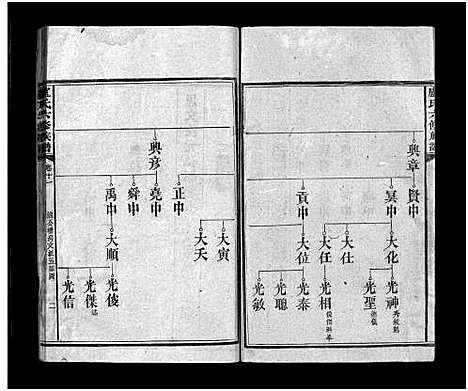 盧氏六修族譜
興章
賢中
㝠中
貢中
大化
大仕
大任
大位
光神
光聖
光相
光泰
光聰
光敏
興彦
正中
堯中
舜中
禹中
大寅
大天
大順
光俊
光傑
光信
盧氏六修族譜
卷十一
二